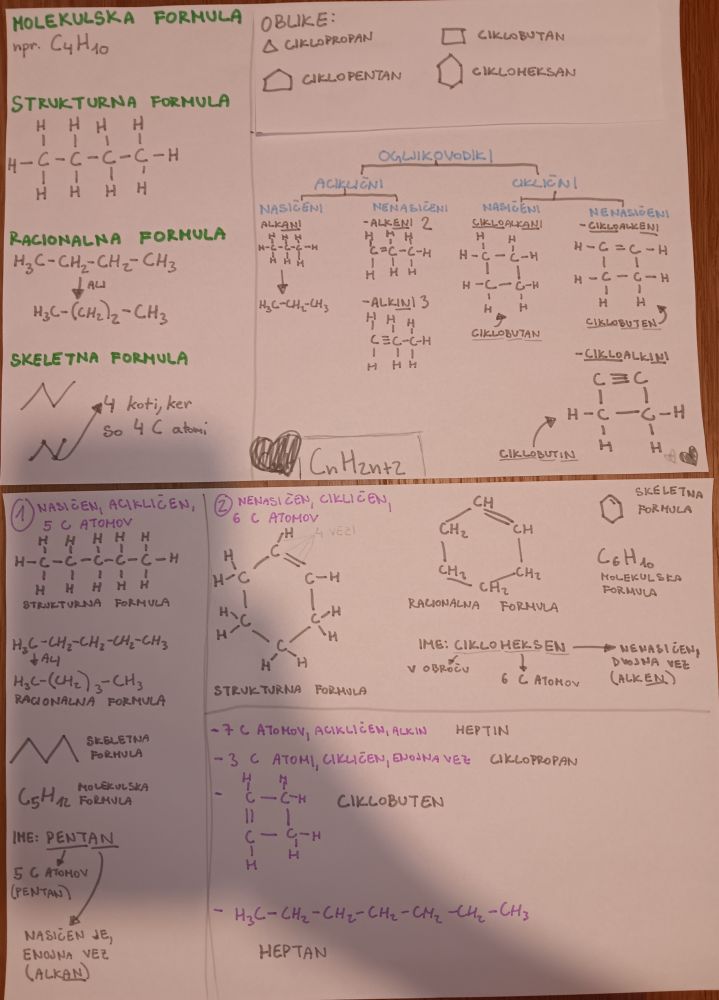 MOLEKULSKA FORMULA
npr. C₄H₁₀
STRUKTURNA FORMULA
H H H H
H-C-C-C-C-H
H H H H
RACIONALNA FORMULA
H₃C-CH₂-CH₂-CH₃
ALI
H₃C-(CH₂)₂-CH₃
SKELETNA FORMULA
4 koti, ker
so 4 C atomi
OBLIKE:
CIKLOPROPAN
CIKLOBUTAN
CIKLOPENTAN
CIKLOHEKSAN
OGLJIKOVODIKI
ACIKLIČNI
CIKLIČNI
NASIČENI
ALKANI
H H H
H-C-C-C-H
H H H
H₃C-CH₂-CH₃
NENASIČENI
-ALKENI 2
H H H
C=C-C-H
H H H
-ALKINI 3
H H H
C≡C-C-H
H H H
NASIČENI
CIKLOALKANI
H H
H-C-C-H
H-C-C-H
H H
CIKLOBUTAN
NENASIČENI
-CIKLOALKENI
H-C=C-H
H-C-C-H
H H
CIKLOBUTEN
-CIKLOALKINI
C≡C
H-C-C-H
H H
CIKLOBUTIN
CnH2n+2
1 NASIČEN, ACIKLIČEN,
5 C ATOMOV
H H H H H
H-C-C-C-C-C-H
H H H H H
STRUKTURNA FORMULA
H₃C-CH₂-CH₂-CH₂-CH₃
ALI
H₃C-(CH₂)₃-CH₃
RACIONALNA FORMULA
SKELETNA
FORMULA
C₅H₁₂ MOLEKULSKA
FORMULA
IME: PENTAN
5 C ATOMOV
(PENTAN)
NASIČEN JE,
ENOJNA VEZ
(ALKAN)
2 NENASIČEN, CIKLIČEN,
6 C ATOMOV
4 VEZI
H
H C
H-C C-H
H-C C-H
H C H
H H
STRUKTURNA FORMULA
CH
CH₂ CH
CH₂ CH₂
CH₂
RACIONALNA FORMULA
SKELETNA
FORMULA
C₆H₁₀
MOLEKULSKA
FORMULA
IME: CIKLOHEKSEN
V OBROČU
6 C ATOMOV
NENASIČEN,
DVOJNA VEZ
(ALKEN)
-7 C ATOMOV, ACIKLIČEN, ALKIN HEPTIN
-3 C ATOMI, CIKLIČEN, ENOJNA VEZ CIKLOPROPAN
H H
- C-C-H CIKLOBUTEN
C-C-H
H H
- H₃C-CH₂-CH₂-CH₂-CH₂-CH₂-CH₃
HEPTAN